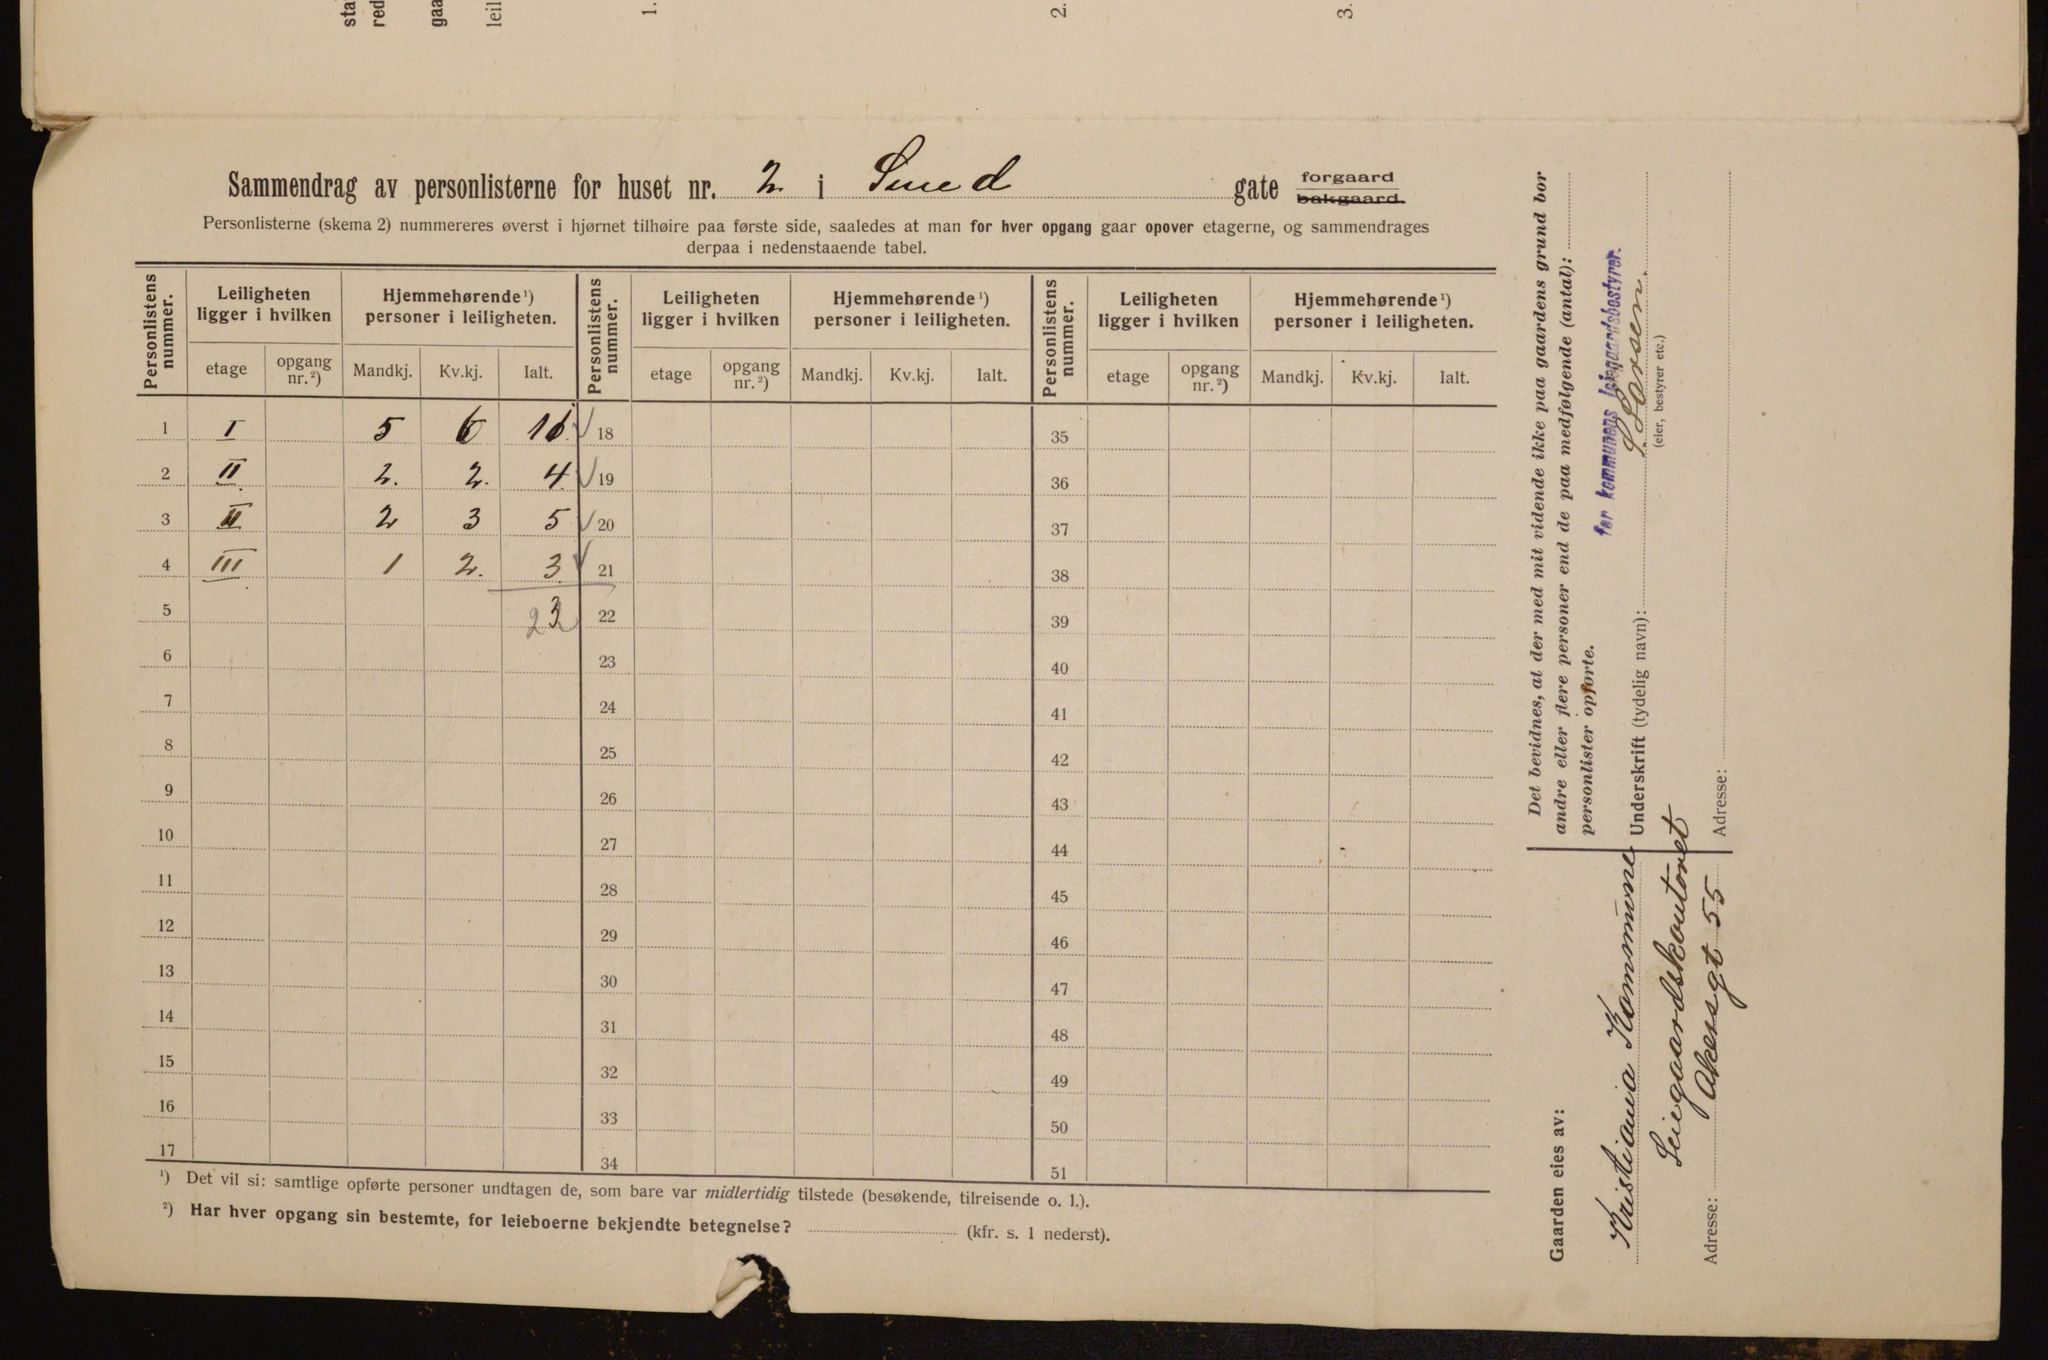 sta
red
gaa
leil
1.
2.
3.
Sammendrag av personlisterne for huset nr. 2 i Smed gate forgaard bakgaard.
Personlisterne (skema 2) nummereres øverst i hjørnet tilhøire paa første side, saaledes at man for hver opgang gaar opover etagerne, og sammendrages
derpaa i nedenstaaende tabel.
Personlistens nummer. Leiligheten ligger i hvilken Hjemmehørende ¹) personer i leiligheten. Personlistens nummer. Leiligheten ligger i hvilken Hjemmehørende ¹) personer i leiligheten. Personlistens nummer. Leiligheten ligger i hvilken Hjemmehørende ¹) personer i leiligheten.
etage opgang nr. ²) Mandkj. Kv.kj. Ialt. etage opgang nr. ²) Mandkj. Kv.kj. Ialt. etage opgang nr. ²) Mandkj. Kv.kj. Ialt.
1 I 5 6 18 35
2 II 2. 2. 4 19 36
3 II 2 3 5 20 37
4 III 1 2. 3 21 38
5 22 39
6 23 40
7 24 41
8 25 42
9 26 43
10 27 44
11 28 45
12 29 46
13 30 47
14 31 48
15 32 49
16 33 50
17 34 51
¹) Det vil si: samtlige opførte personer undtagen de, som bare var midlertidig tilstede (besøkende, tilreisende o. l.).
²) Har hver opgang sin bestemte, for leieboerne bekjendte betegnelse? (kfr. s. 1 nederst).
Det bevidnes, at der med mit vidende ikke paa gaardens grund bor
andre eller flere personer end de paa medfølgende (antal):
personlister opførte.
for kommunens leiegaardsbestyrer.
Underskrift (tydelig navn): Larsen.
(eier, bestyrer etc.)
Adresse:
Gaarden eies av:
Kristiania Kommune
Leiegaardskontoret
Adresse: Akersgt 55